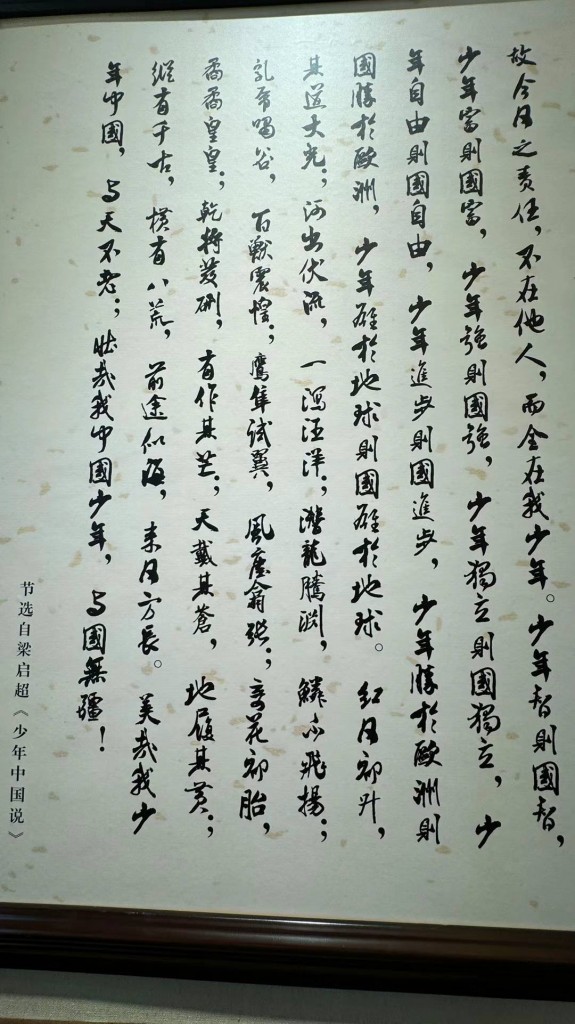 故今日之责任，不在他人，而全在我少年。少年智則國智，
少年富則國富，少年強則國強，少年獨立則國獨立，少
年自由則國自由，少年進步則國進步，少年勝於歐洲則
國勝於歐洲，少年雄於地球則國雄於地球。紅日初升，
其道大光；河出伏流，一瀉汪洋；潛龍騰淵，鱗爪飛揚；
乳虎嘯谷，百獸震惶；鷹隼試翼，風塵翕張；奇花初胎，
矞矞皇皇；乾將發硎，有作其芒；天戴其蒼，地履其黃；
縱有千古，橫有八荒，前途似海，来日方長。美哉我少
年中國，与天不老；壮哉我中國少年，与國無疆！
节选自梁启超《少年中国说》